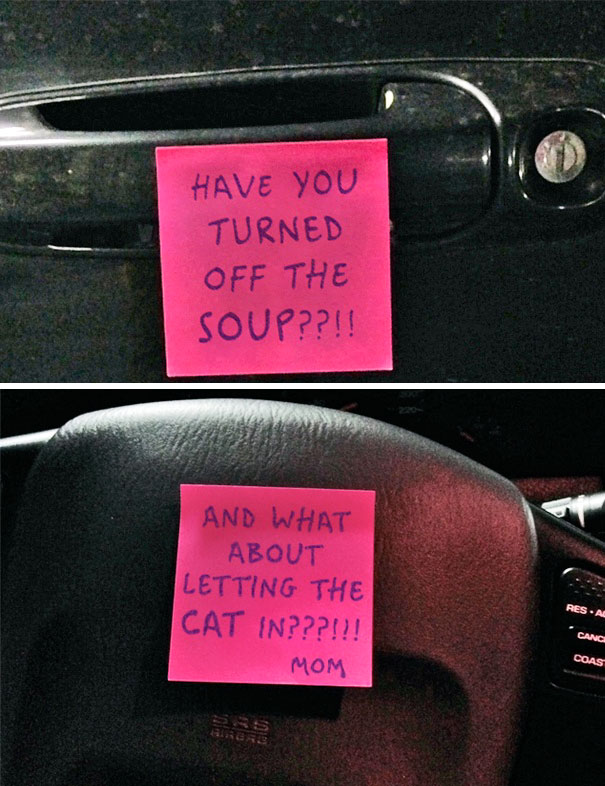 HAVE YOU
TURNED
OFF THE
SOUP??!!
AND WHAT
ABOUT
LETTING THE
CAT IN???!!!
MOM
SRS
AIRBAG
RES